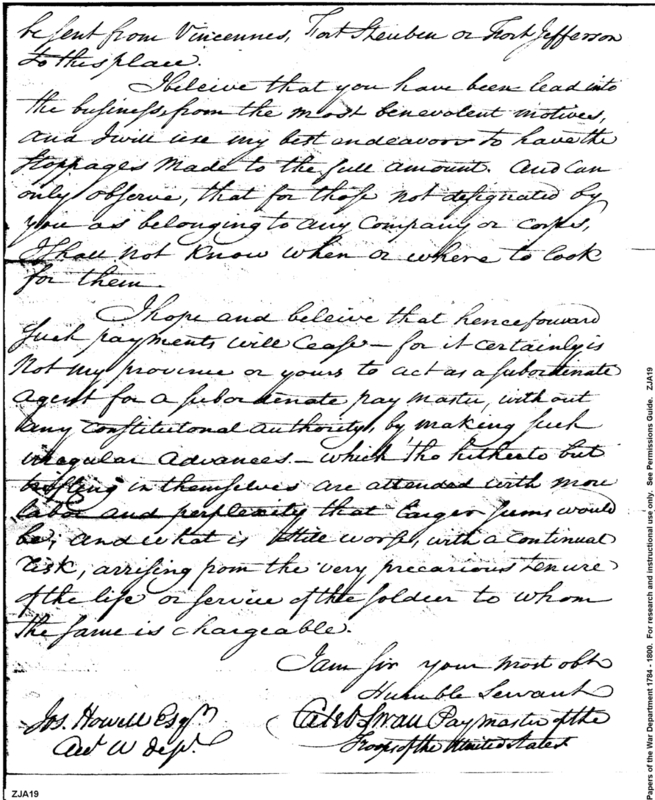 be sent from Vincennes, Fort Steuben or Fort Jefferson
to this place.
I beleive that you have been lead into
the business, from the most benevolent motives,
and I will use my best endeavors to have the
stoppages made to the full amount. And can
only observe, that for those not designated by
you as belonging to any Company or corps,
I shall not know when or where to look
for them.
I hope and beleive that henceforward
such payments will cease — for it certainly is
not my province or yours to act as a subordenate
agent for a subordenate pay master, without
any constitutonal authority, by making such
irregular advances — which 'tho hitherto but
trifling in themselves are attended with more
labor and perplexity that larger sums would
be; and what is still worse, with a continual
risk, arrising from the very precarious tenure
of the life or service of the soldeer to whom
the same is chargeable.
I am sir your most obt
Humble Servant
Jos. Howell Esqr
Caleb Swan Paymaster of the
Troops of the United States
ZJA19
Papers of the War Department 1784 - 1800. For research and instructional use only. See Permissions Guide. ZJA19